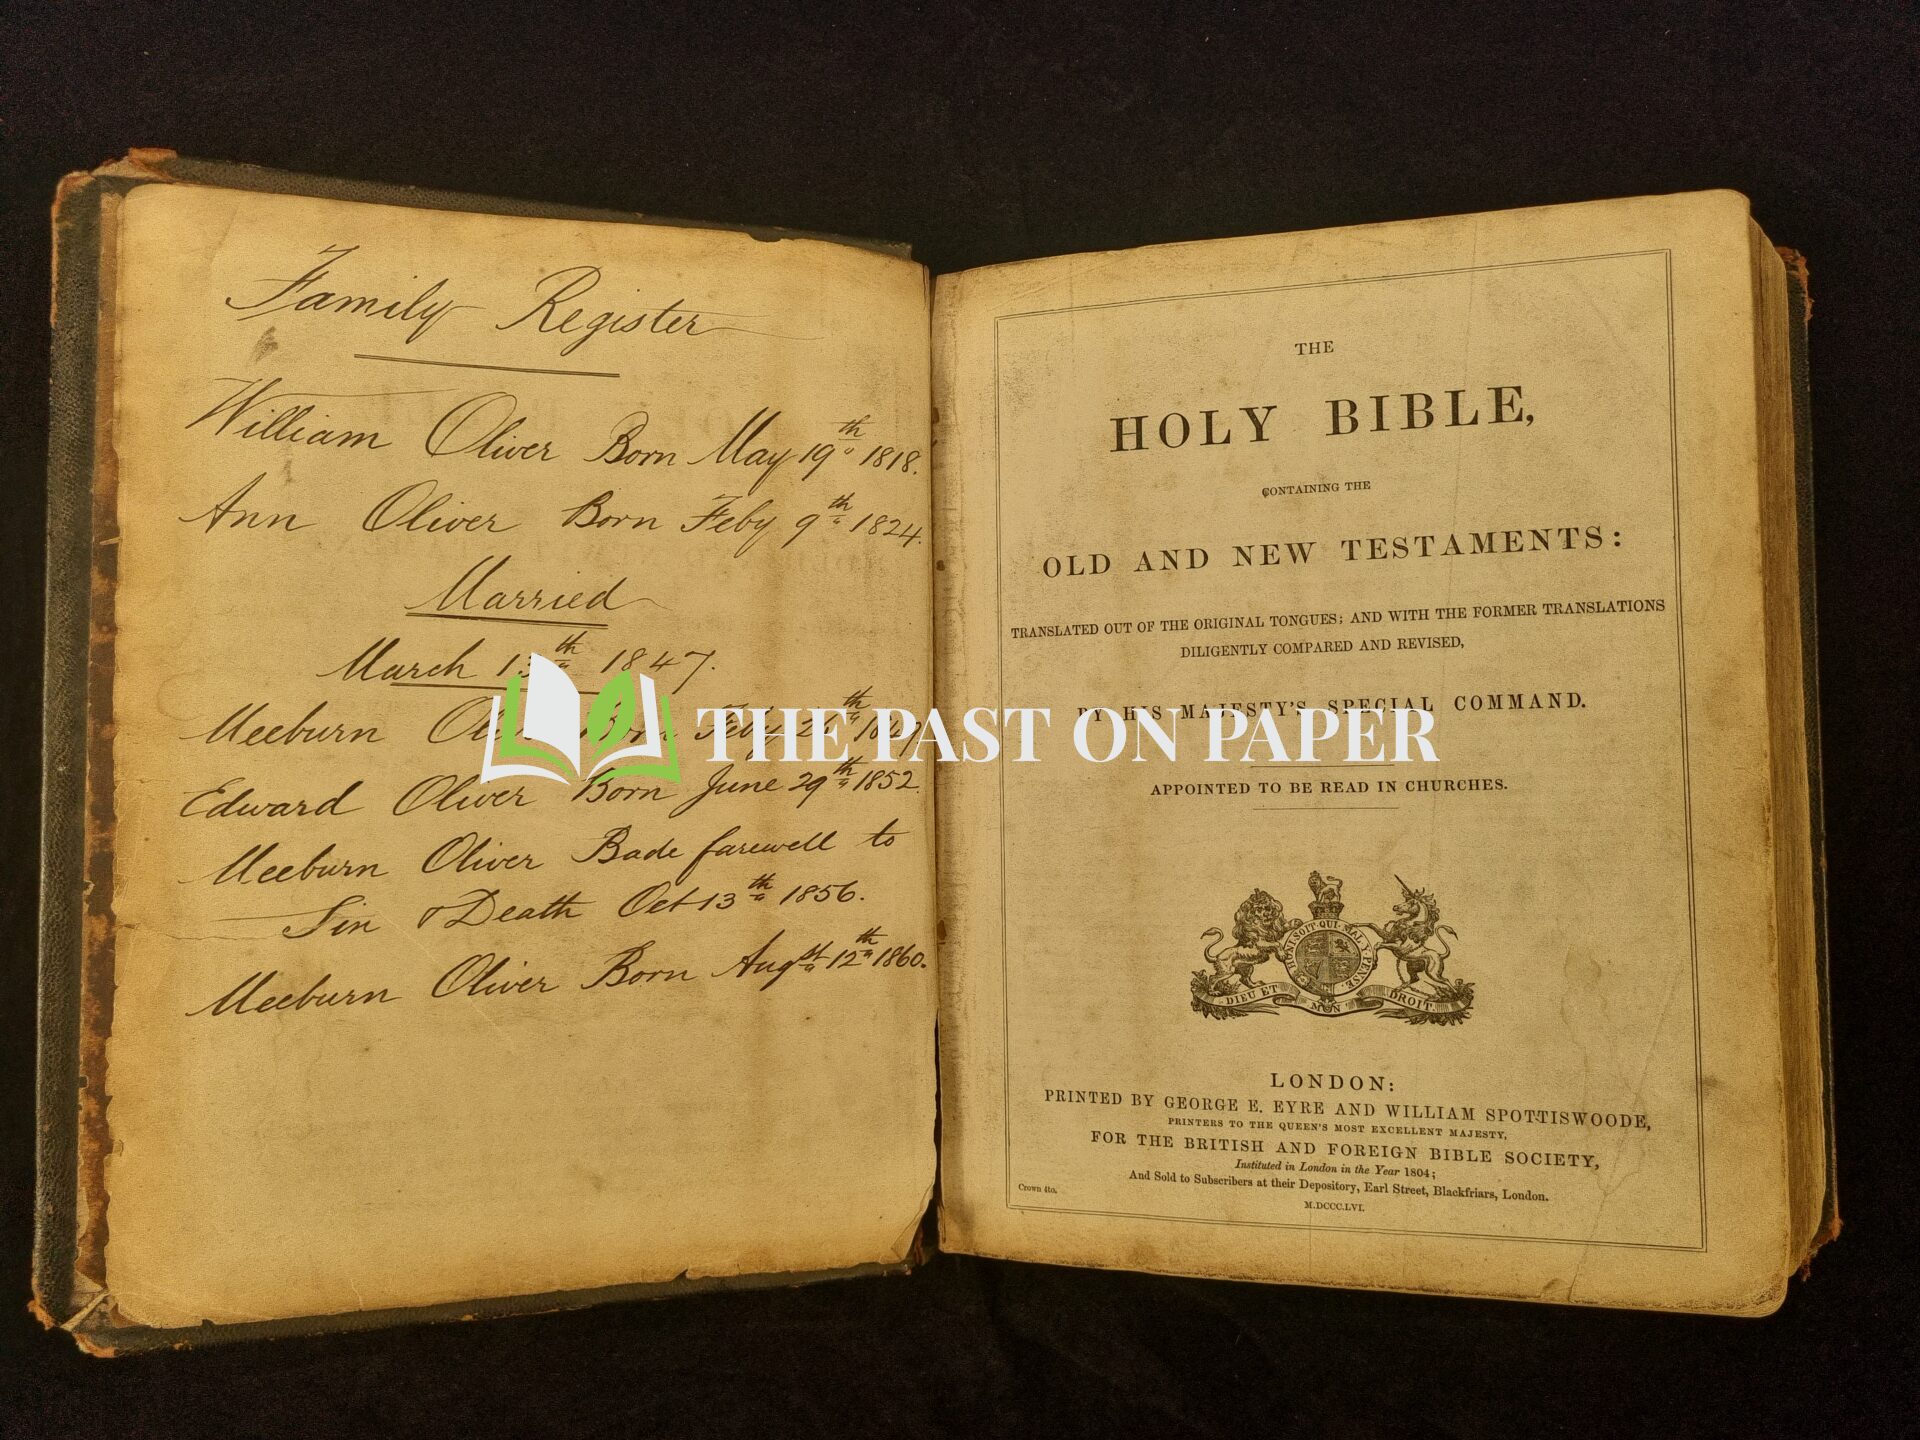 Family Register
William Oliver Born May 19th 1818.
Ann Oliver Born Feby 9th 1824.
Married
March 13th 1847.
Meeburn Oliver Born Feby 26th 1849
Edward Oliver Born June 29th 1852.
Meeburn Oliver Bade farewell to
Sin & Death Oct 13th 1856.
Meeburn Oliver Born Augst 12th 1860.
THE PAST ON PAPER
THE
HOLY BIBLE,
CONTAINING THE
OLD AND NEW TESTAMENTS:
TRANSLATED OUT OF THE ORIGINAL TONGUES; AND WITH THE FORMER TRANSLATIONS
DILIGENTLY COMPARED AND REVISED,
BY HIS MAJESTY'S SPECIAL COMMAND.
APPOINTED TO BE READ IN CHURCHES.
HONI·SOIT·QUI·MAL·Y·PENSE
DIEU ET MON DROIT
LONDON:
PRINTED BY GEORGE E. EYRE AND WILLIAM SPOTTISWOODE,
PRINTERS TO THE QUEEN'S MOST EXCELLENT MAJESTY,
FOR THE BRITISH AND FOREIGN BIBLE SOCIETY,
Instituted in London in the Year 1804;
And Sold to Subscribers at their Depository, Earl Street, Blackfriars, London.
Crown 4to.
M.DCCC.LVI.